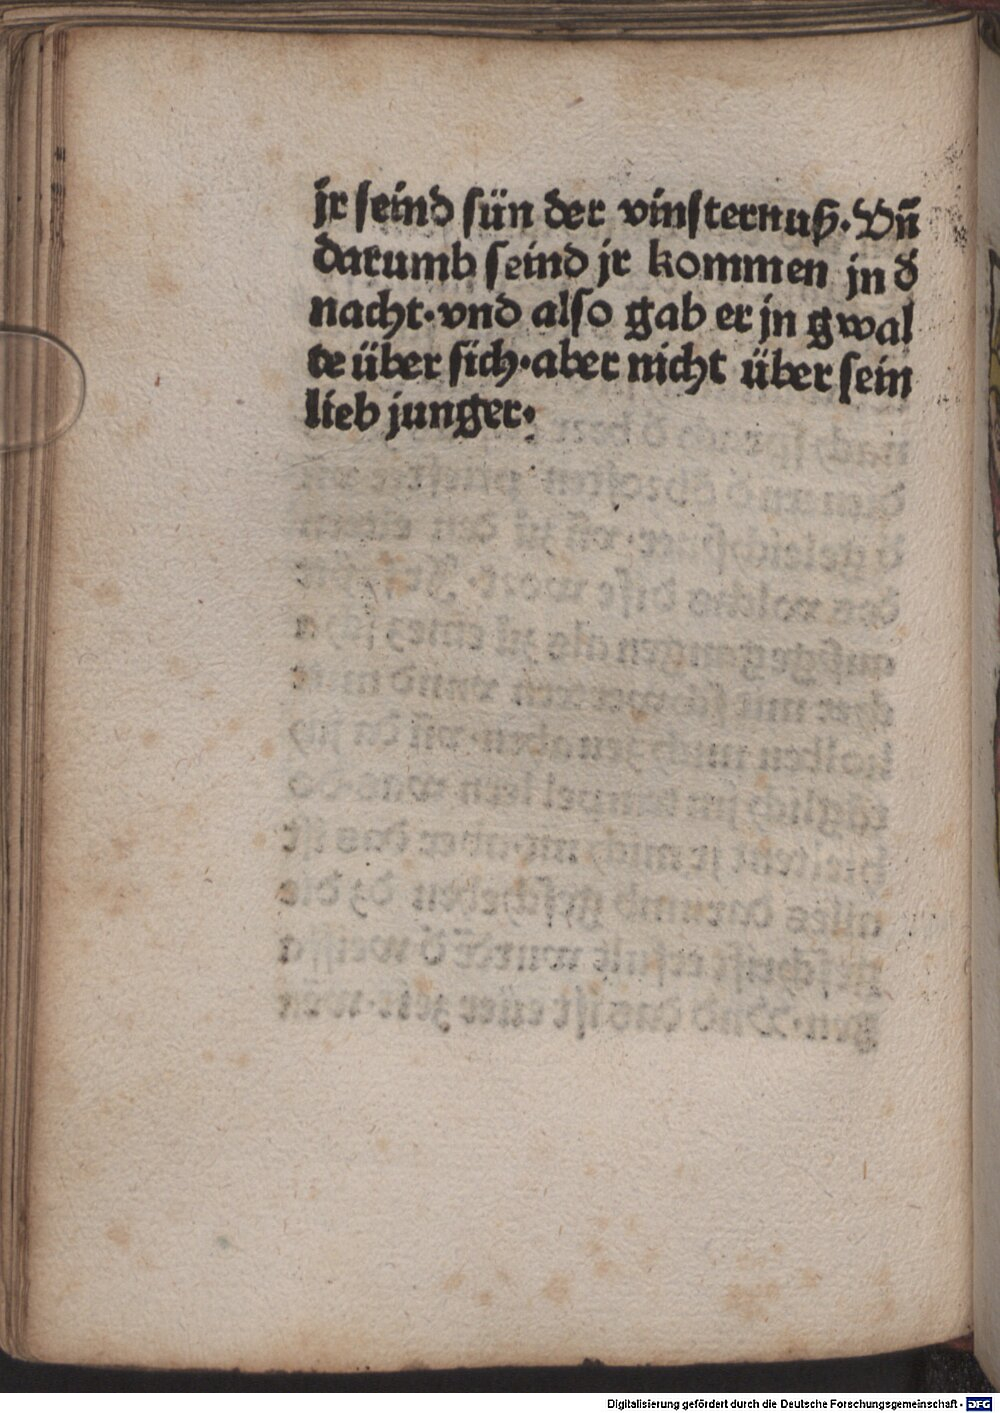 jr seind sün der vinsternuß. Vn̄
darumb seind jr kommen jn đ
nacht. vnd also gab er jn gwal
te über sich. aber nicht über sein
lieb junger.
Digitalisierung gefördert durch die Deutsche Forschungsgemeinschaft - DFG